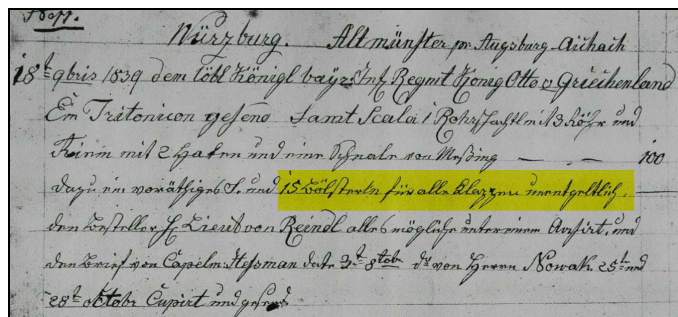 Würzburg. Altmünster pr Augsburg-Aichach
18t 9bris 1839 dem löbl Königl bayrs Inf Regmt König Otto v Griechenland
Ein Tritonicon gesend samt Scala 1 Rohrschachtl mit 3 Röhr und
Riem mit 2 Haken und eine Schnale von Meßing — — 100
dazu ein vorräthiges S. und 15 Bölsterln für alle Klappen unentgeltlich.
den Besteller H Lieut von Reindl alles mögliche unter einem Avisirt. und
den Brief von Capelm: Hessman date 3t 8tobr ds von Herrn Nowak 25t und
28t octobr Cupirt und gesend